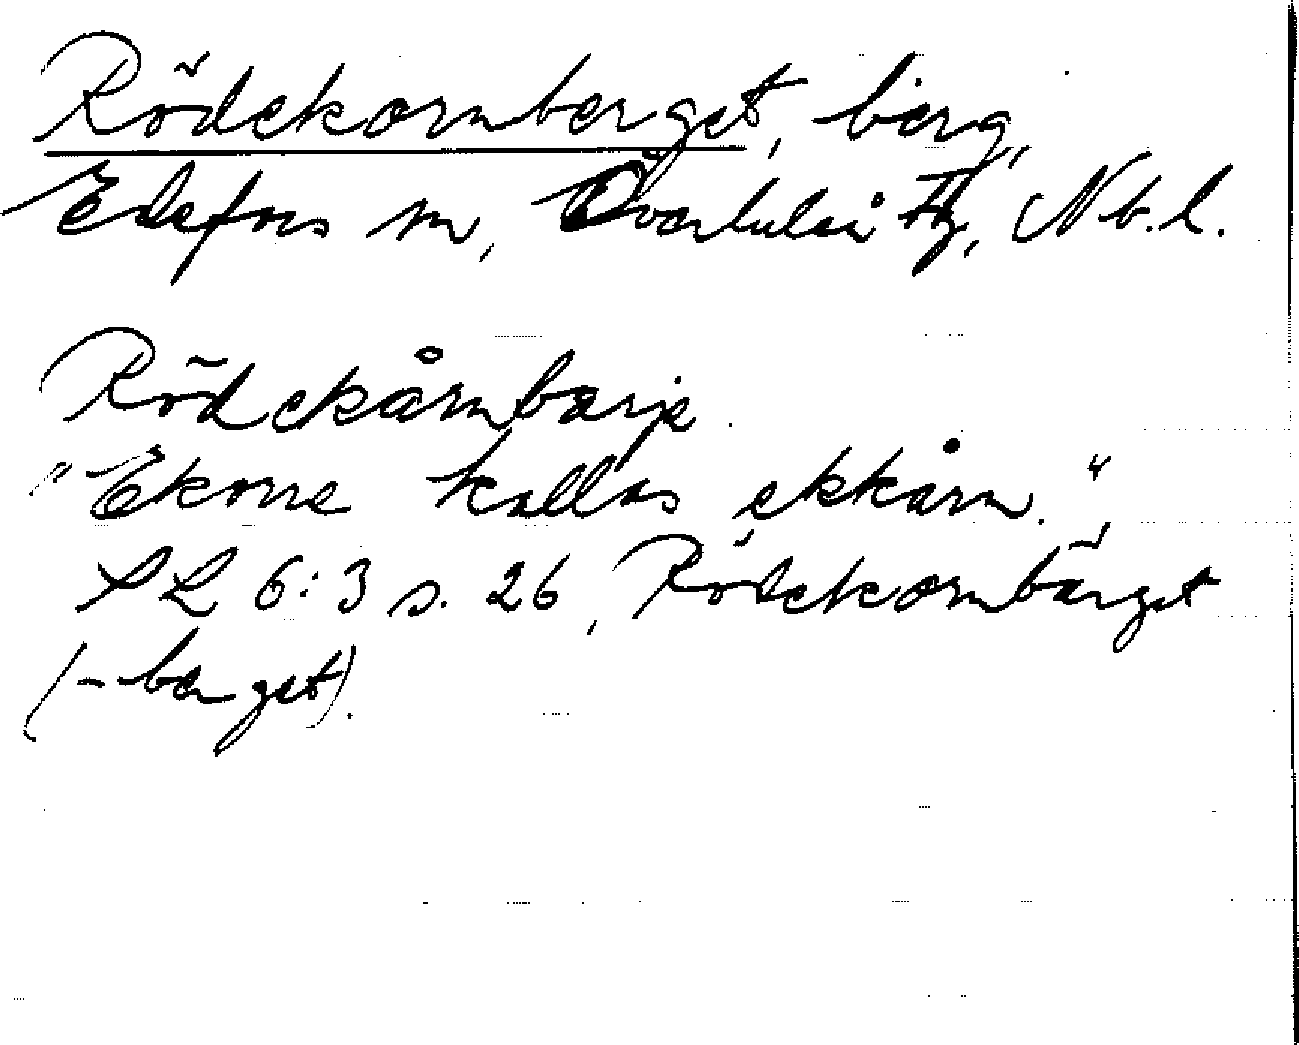 Rödekornberget, berg,
Edefors sn, Överluleå tg, Nb. l.
Rödekårnbærje.
"Ekorre kallas ekkårn.",
SL 6:3 s. 26, Rödekornbärget
(-berget).